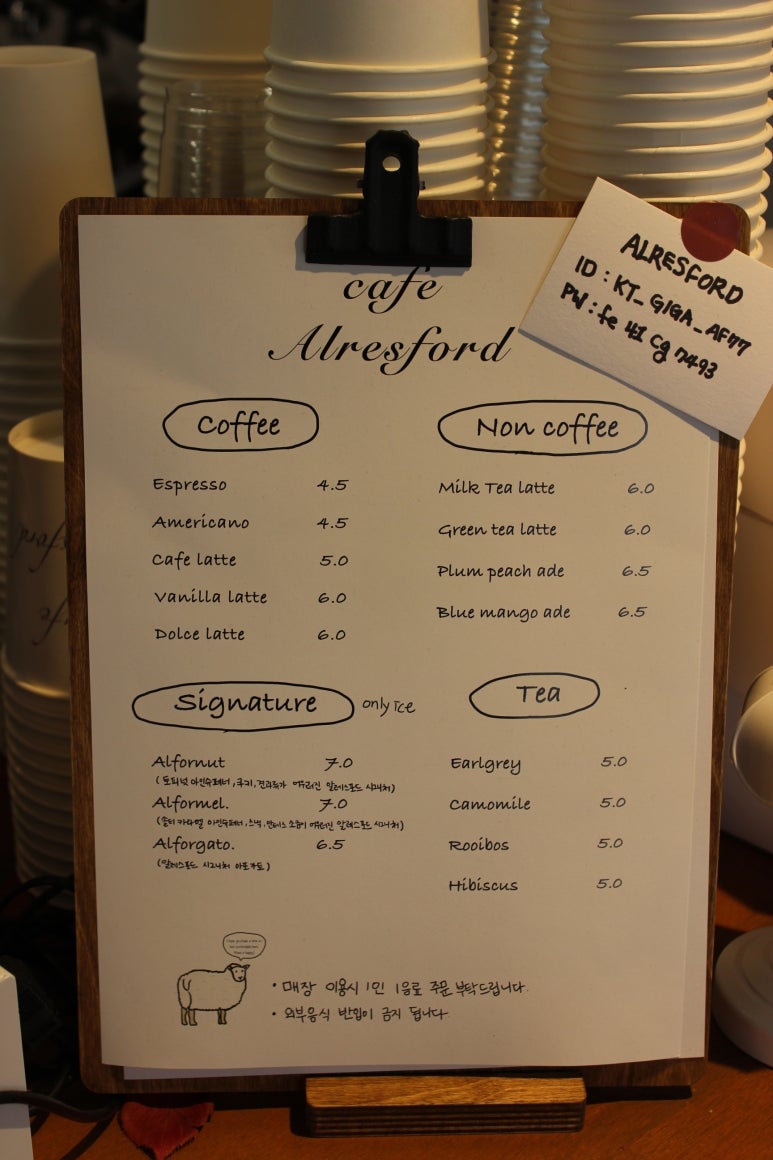 cafe
Alresford
ALRESFORD
ID : KT_GIGA_AF77
PW : fe 41 cg 7493
Coffee
Espresso 4.5
Americano 4.5
Cafe latte 5.0
Vanilla latte 6.0
Dolce latte 6.0
Non coffee
Milk Tea latte 6.0
Green tea latte 6.0
Plum peach ade 6.5
Blue mango ade 6.5
Signature only ice
Alfornut 7.0
(토피넛 아인슈페너, 쿠키, 견과류가 어우러진 알레스포드 시그니처)
Alformel. 7.0
(솔티 카라멜 아인슈페너, 스낵, 어우러진 알레스포드 시그니처)
Alforgato. 6.5
(알레스포드 시그니처 아포가토)
Tea
Earlgrey 5.0
Camomile 5.0
Rooibos 5.0
Hibiscus 5.0
• 매장 이용시 1인 1음료 주문 부탁드립니다.
• 외부음식 반입이 금지 됩니다.